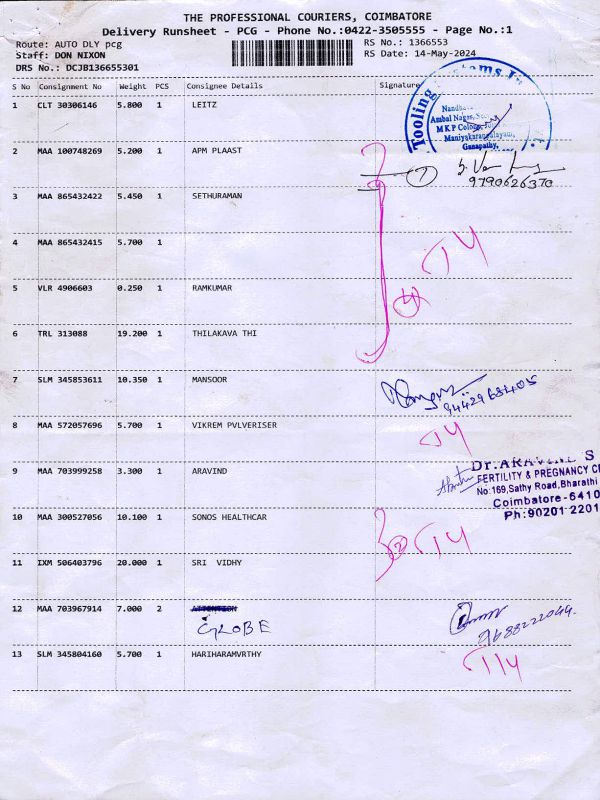 THE PROFESSIONAL COURIERS, COIMBATORE
Delivery Runsheet - PCG - Phone No.:0422-3505555 - Page No.:1
Route: AUTO DLY pcg RS No.: 1366553
Staff: DON NIXON RS Date: 14-May-2024
DRS No.: DCJB136655301
S No Consignment No Weight PCS Consignee Details Signature
1 CLT 30306146 5.800 1 LEITZ
Tooling Systems
Ambal Nagar,
MKP Colony,
Maniyakarampalayam,
Ganapathy,
2 MAA 100748269 5.200 1 APM PLAAST
1
9790626370
3 MAA 865432422 5.450 1 SETHURAMAN
4 MAA 865432415 5.700 1
5 VLR 4906603 0.250 1 RAMKUMAR
4
6 TRL 313088 19.200 1 THILAKAVA THI
7 SLM 345853611 10.350 1 MANSOOR
9442968405
8 MAA 572057696 5.700 1 VIKREM PVLVERISER
9 MAA 703999258 3.300 1 ARAVIND
Dr.ARAVIND S
FERTILITY & PREGNANCY
No:169,Sathy Road,Bharathi
Coimbatore-6410
Ph:90201 2201
10 MAA 300527056 10.100 1 SONOS HEALTHCAR
2
11 IXM 506403796 20.000 1 SRI VIDHY
12 MAA 703967914 7.000 2 ATTENTION
GLOBE
9688222049
13 SLM 345804160 5.700 1 HARIHARAMVRTHY